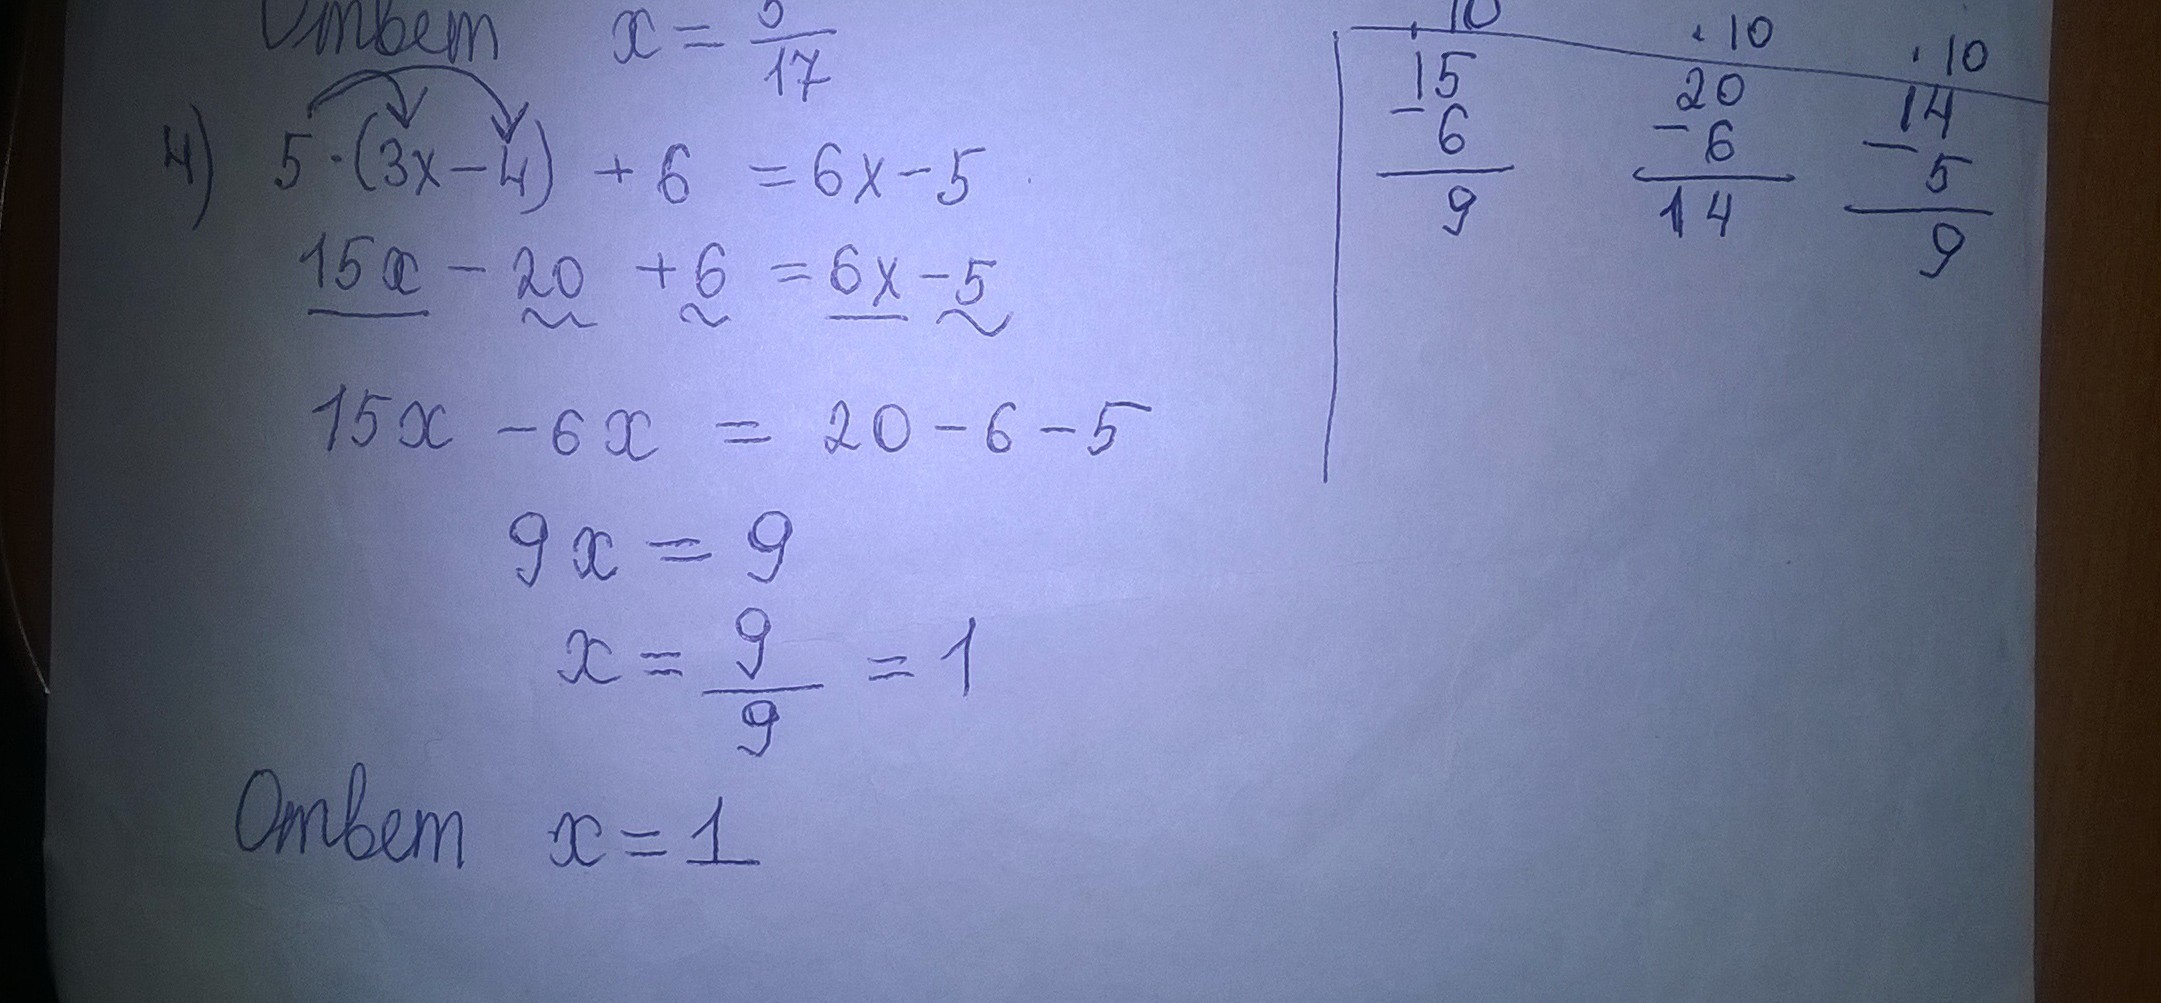 Ответ x = 5/17
4) 5·(3x-4) + 6 = 6x-5
15x - 20 + 6 = 6x-5
15x - 6x = 20-6-5
9x = 9
x = 9/9 = 1
Ответ x=1
·10 ·10 ·10
15 20 14
- 6 - 6 - 5
9 14 9